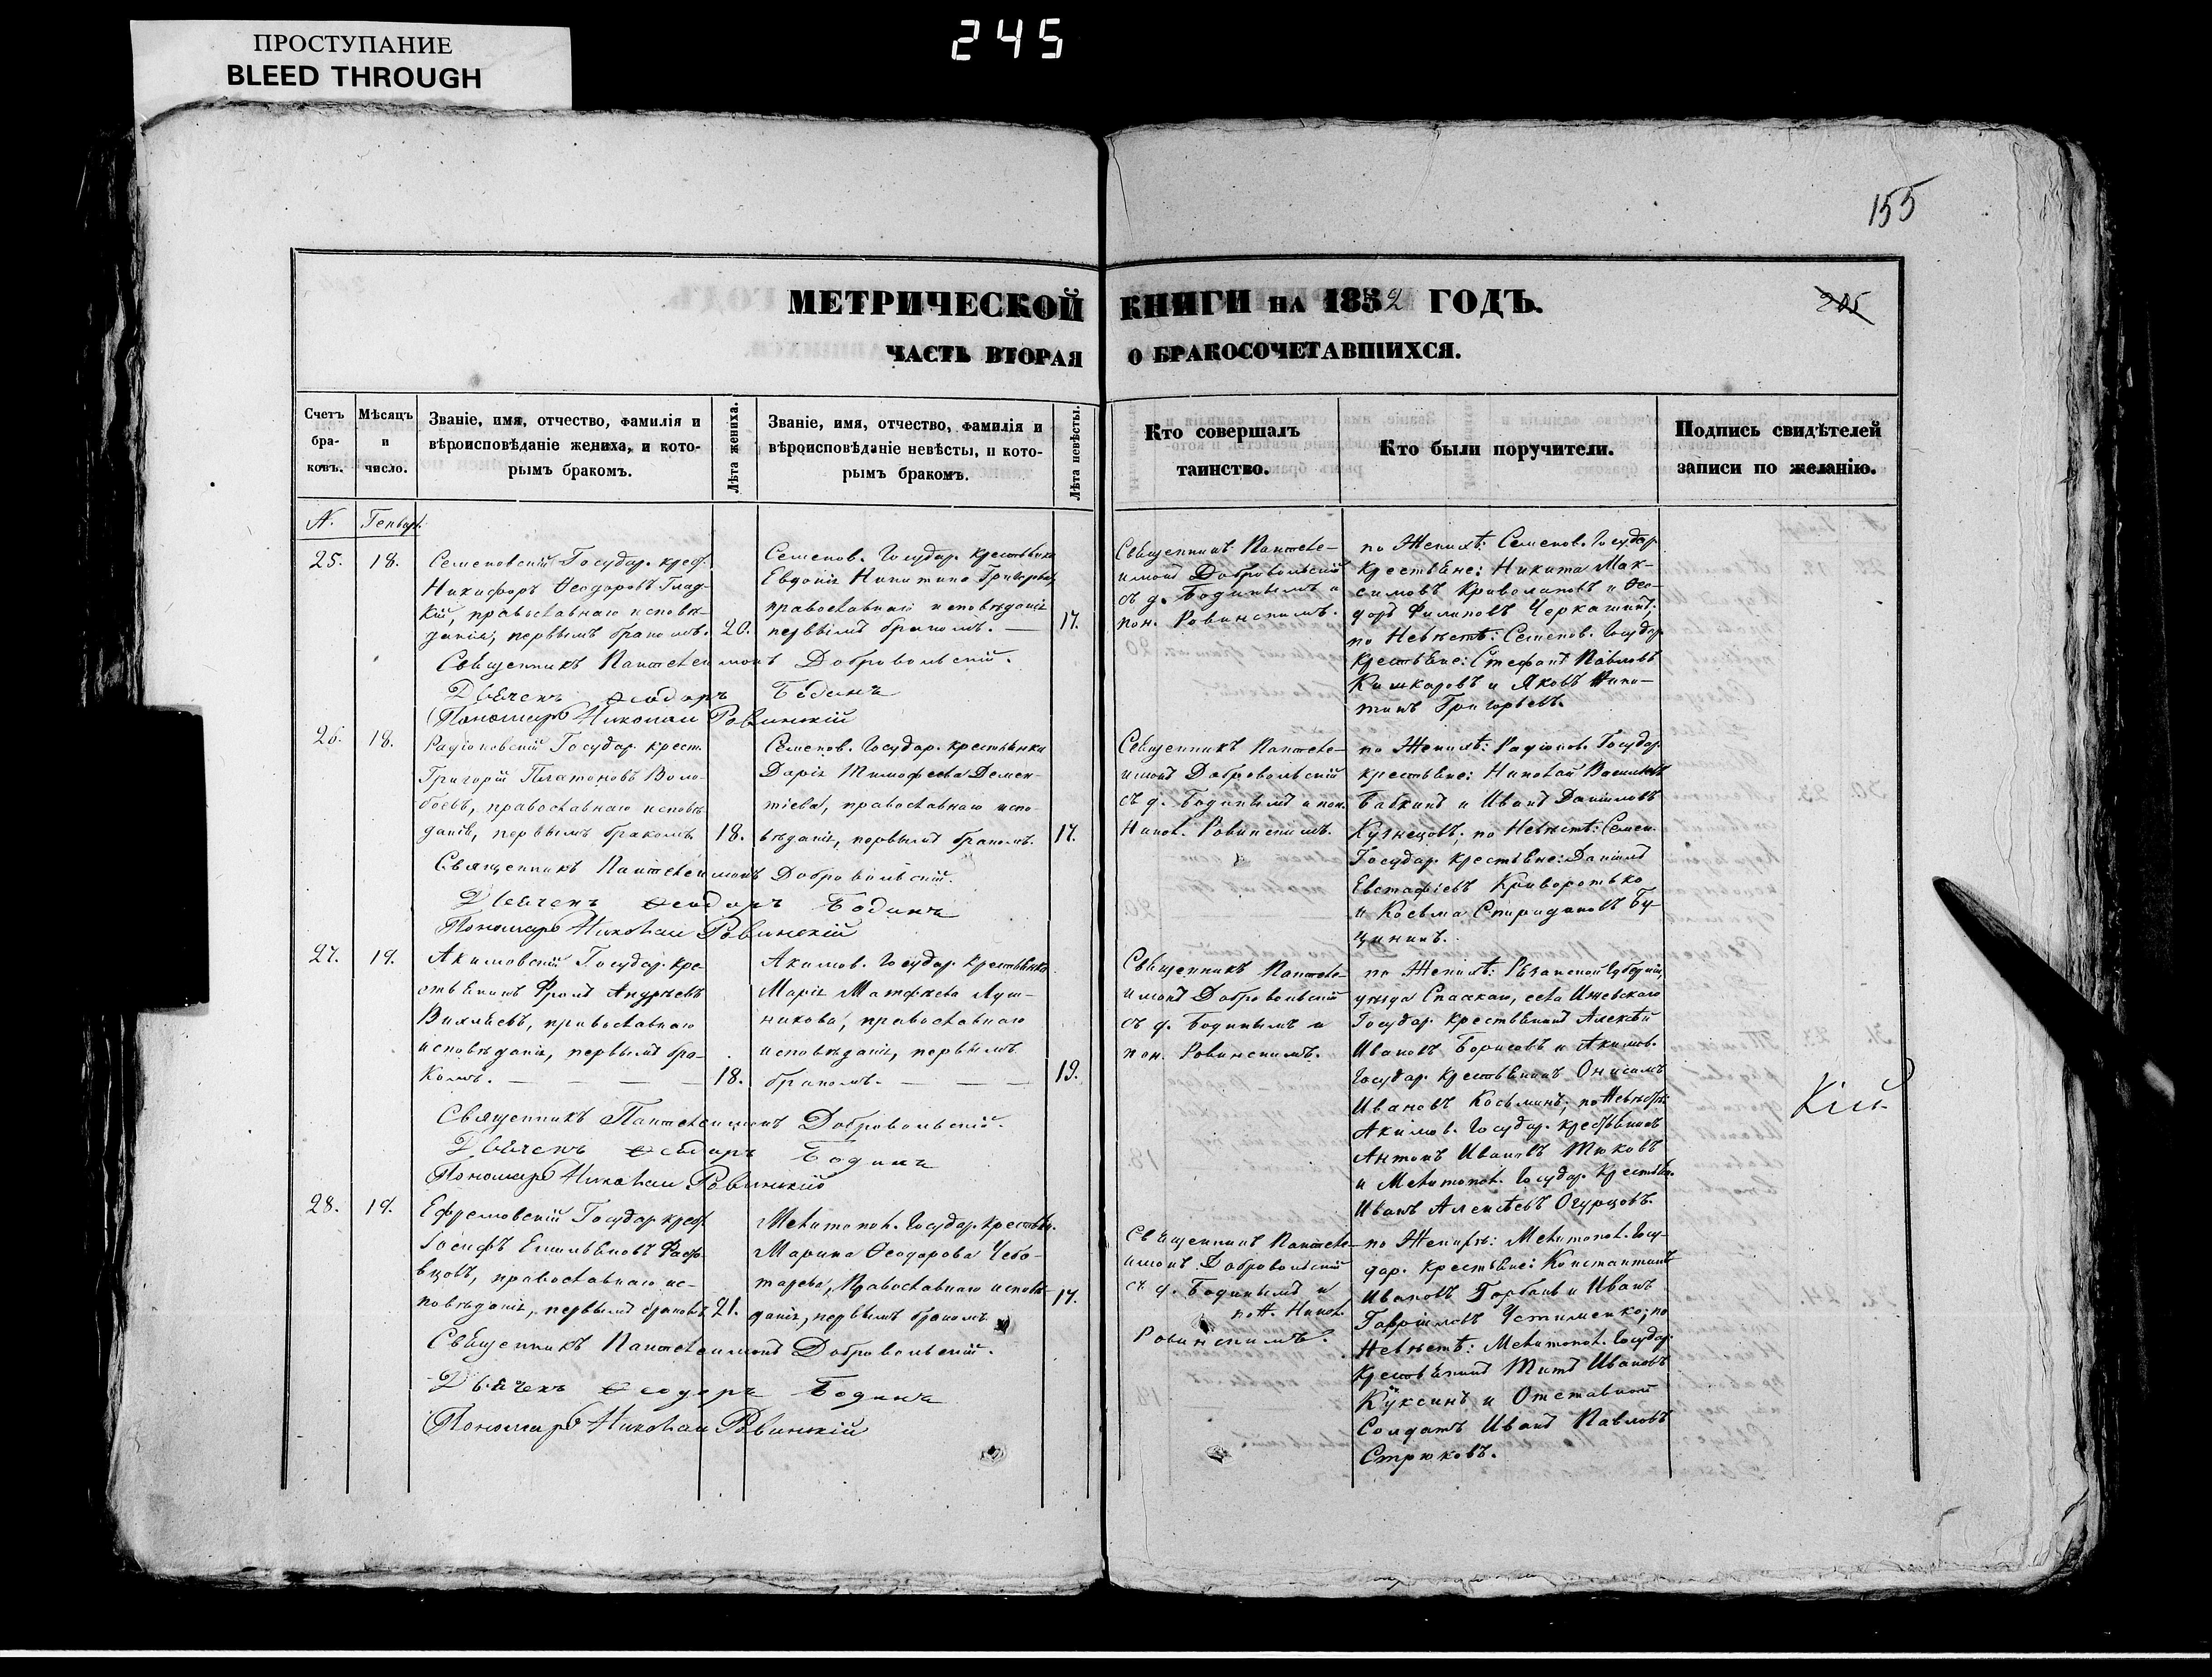 ПРОСТУПАНИЕ
BLEED THROUGH
245
155
МЕТРИЧЕСКОЙ КНИГИ НА 1852 ГОДЪ.
205
ЧАСТЬ ВТОРАЯ О БРАКОСОЧЕТАВШИХСЯ.
Счетъ
бра-
ковъ.
Мѣсяцъ
и
число.
Званіе, имя, отчество, фамилія и
вѣроисповѣданіе жениха, и кото-
рымъ бракомъ.
Лѣта жениха.
Званіе, имя, отчество, фамилія и
вѣроисповѣданіе невѣсты, и кото-
рымъ бракомъ.
Лѣта невѣсты.
Кто совершалъ
таинство.
Кто были поручители.
Подпись свидѣтелей
записи по желанію.
N.
25.
18.
Семеновскій Государ. крест.
Никифоръ Ѳеодоровъ Глад-
кій, православнаго исповѣ-
данія, первымъ бракомъ.
20.
Семенов. Государ. крестьянка
Евдокія Никитина Григорьева
православнаго исповѣданія
первымъ бракомъ. —
17.
Священникъ Пантеле-
имонъ Добровольскій
съ д. Бодинымъ и
пон. Ровинскимъ.
по Женихѣ: Семенов. Государ.
крестьяне: Никита Мак-
симовъ Криволаповъ и Ѳео-
доръ Филиповъ Черкашинъ.
по Невѣстѣ: Семенов. Государ.
крестьяне: Стефанъ Павловъ
Кишкаровъ и Яковъ Ники-
тинъ Григорьевъ.
Священникъ Пантелеимонъ Добровольскій.
Дьячекъ Ѳеодоръ Бодинъ
Пономарь Николай Ровинскій
26.
18.
Радіоновскій Государ. крест.
Григорій Платоновъ Воло-
боевъ, православнаго исповѣ-
данія, первымъ бракомъ.
18.
Семенов. Государ. крестьянка
Дарія Тимофеева Демен-
тіева, православнаго испо-
вѣданія, первымъ бракомъ.
17.
Священникъ Пантеле-
имонъ Добровольскій
съ д. Бодинымъ и пон.
Никол. Ровинскимъ.
по Женихѣ: Радіонов. Государ.
крестьяне: Николай Васильевъ
Бабкинъ и Иванъ Даниловъ
Кузнецовъ; по Невѣстѣ: Семен.
Государ. крестьяне: Даніилъ
Евстафіевъ Криворотько
и Косьма Спиридоновъ Бу-
цининъ.
Священникъ Пантелеимонъ Добровольскій.
Дьячекъ Ѳеодоръ Бодинъ
Пономарь Николай Ровинскій
27.
19.
Акимовскій Государ. кре-
стьянинъ Фролъ Андреевъ
Вихляевъ, православнаго
исповѣданія, первымъ бра-
комъ. — — — —
18.
Акимов. Государ. крестьянка
Марія Матфеева Луш-
никова, православнаго
исповѣданія, первымъ
бракомъ. — — —
19.
Священникъ Пантеле-
имонъ Добровольскій
съ д. Бодинымъ и
пон. Ровинскимъ.
по Женихѣ: Рязанской Губерніи,
уѣзда Спаскаго, села Ижевскаго
Государ. крестьянинъ Алексѣй
Ивановъ Борисовъ и Акимов.
Государ. крестьянинъ Онисимъ
Ивановъ Косьминъ; по Невѣстѣ:
Акимов. Государ. крестьянинъ
Антонъ Ивановъ Тюковъ
и Мелитопол. Государ. крестьян.
Иванъ Алексѣевъ Огурцовъ.
Священникъ Пантелеимонъ Добровольскій.
Дьячекъ Ѳеодоръ Бодинъ
Пономарь Николай Ровинскій
28.
19.
Ефремовскій Государ. крест.
Іосифъ Емельяновъ
православнаго ис-
повѣданія, первымъ бракомъ.
21.
Мелитопол. Государ. крестьян.
Марина Ѳеодорова Чебо-
тарева, Православнаго исповѣ-
данія, первымъ бракомъ
17.
Священникъ Пантеле-
имонъ Добровольскій
съ д. Бодинымъ и
пон. Никол.
Ровинскимъ.
по Женихѣ: Мелитопол. Госу-
дар. крестьяне: Константинъ
Ивановъ Горбань и Иванъ
Гавриловъ Устименко; по
Невѣстѣ: Мелитопол. Государ.
крестьянинъ Титъ Ивановъ
Куксинъ и Отставной
Солдатъ Иванъ Павловъ
Стрюковъ.
Священникъ Пантелеимонъ Добровольскій.
Дьячекъ Ѳеодоръ Бодинъ
Пономарь Николай Ровинскій